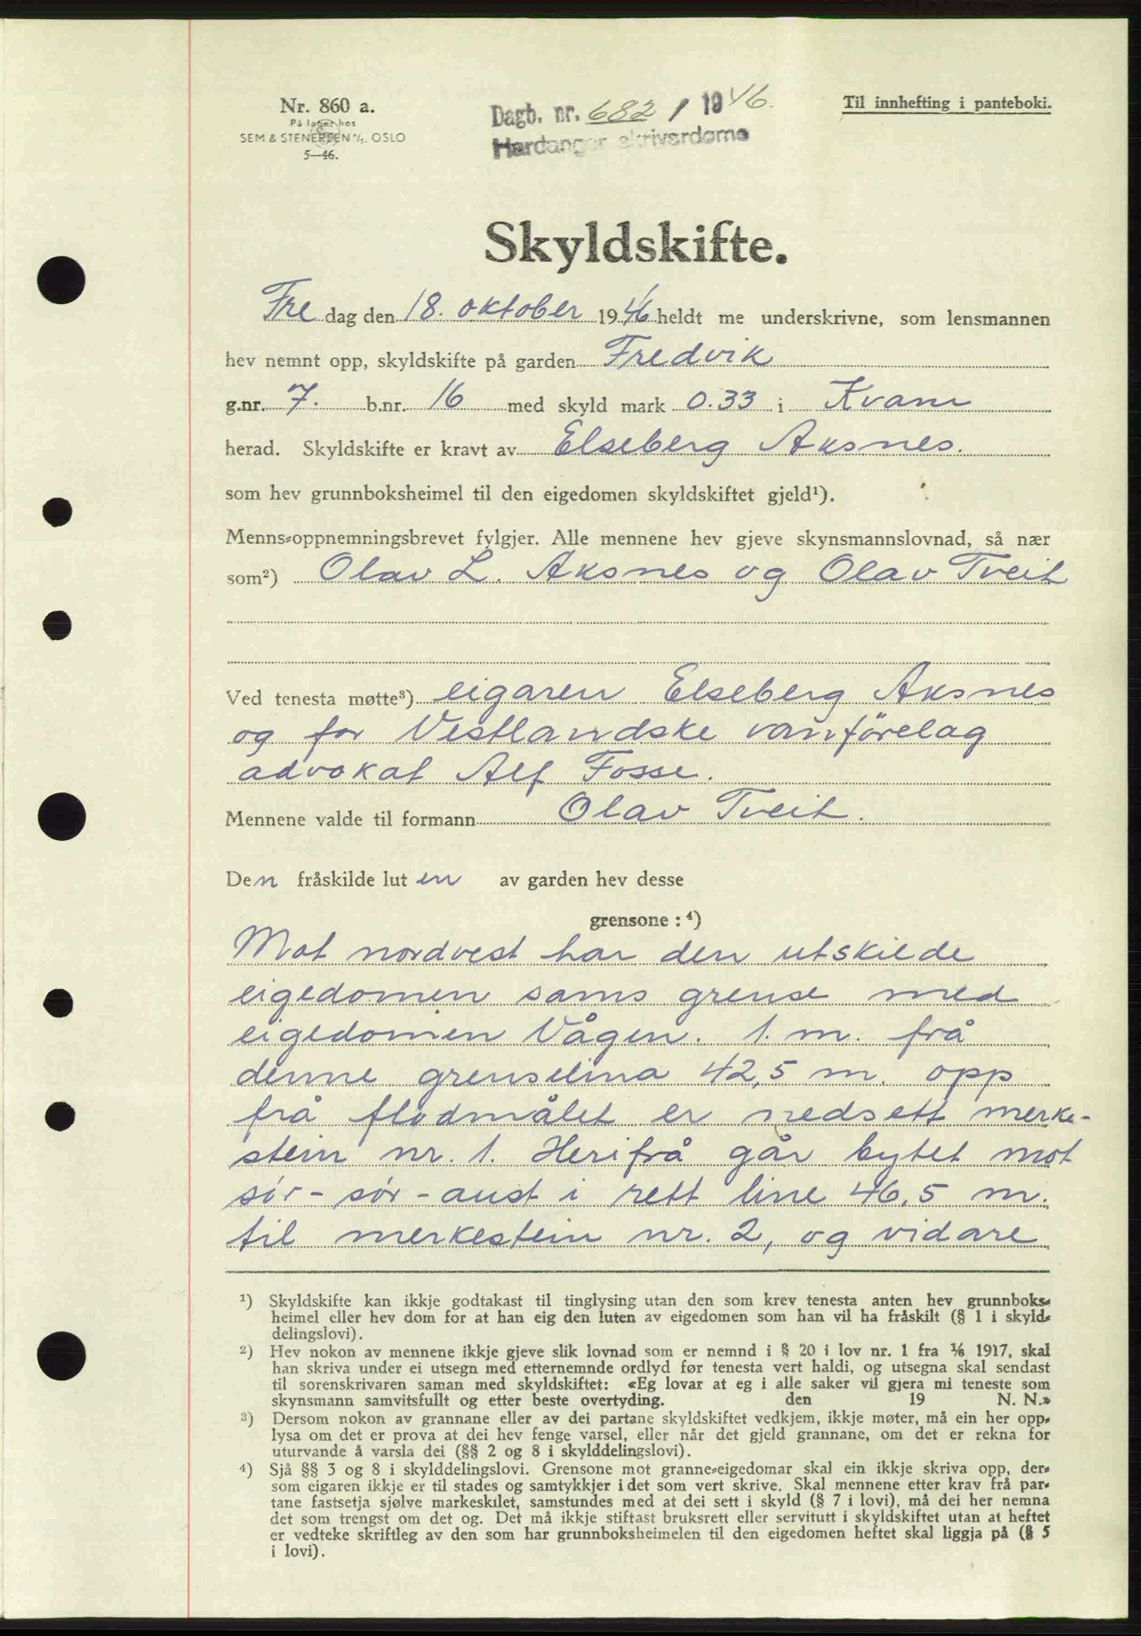 Nr. 860 a.
På lager hos
SEM & STENERSEN A/S. OSLO
5—46.
Dagb. nr. 682 / 1946.
Hardanger skriverdøme
Til innhefting i panteboki.
Skyldskifte.
Fredag den 18. oktober 1946 heldt me underskrivne, som lensmannen
hev nemnt opp, skyldskifte på garden Fredvik
g.nr. 7. b.nr. 16 med skyld mark 0.33 i Kvam
herad. Skyldskifte er kravt av Elseberg Aksnes.
som hev grunnboksheimel til den eigedomen skyldskiftet gjeld¹).
Menns-oppnemningsbrevet fylgjer. Alle mennene hev gjeve skynsmannslovnad, så nær
som²) Olav L. Aksnes og Olav Tveit
Ved tenesta møtte³) eigaren Elseberg Aksnes
og for Vestlandske vanförelag
advokat Alf Fosse.
Mennene valde til formann Olav Tveit.
Den fråskilde luten av garden hev desse
grensone : ⁴)
Mot nordvest har den utskilde
eigedomen sams grense med
eigedomen Vågen. 1. m. frå
denne grenselina 42,5 m. opp
frå flodmålet er nedsett merke-
stein nr. 1. Herifrå går bytet mot
sör-sör-aust i rett line 46,5 m.
til merkestein nr. 2, og vidare
¹) Skyldskifte kan ikkje godtakast til tinglysing utan den som krev tenesta anten hev grunnboks-
heimel eller hev dom for at han eig den luten av eigedomen som han vil ha fråskilt (§ 1 i skyld-
delingslovi).
²) Hev nokon av mennene ikkje gjeve slik lovnad som er nemnd i § 20 i lov nr. 1 fra ¹⁄₆ 1917, skal
han skriva under ei utsegn med etternemnde ordlyd før tenesta vert haldi, og utsegna skal sendast
til sorenskrivaren saman med skyldskiftet: «Eg lovar at eg i alle saker vil gjera mi teneste som
skynsmann samvitsfullt og etter beste overtyding. den 19 N. N.»
³) Dersom nokon av grannane eller av dei partane skyldskiftet vedkjem, ikkje møter, må ein her opp-
lysa om det er prova at dei hev fenge varsel, eller når det gjeld grannane, om det er rekna for
uturvande å varsla dei (§§ 2 og 8 i skylddelingslovi).
⁴) Sjå §§ 3 og 8 i skylddelingslovi. Grensone mot granne-eigedomar skal ein ikkje skriva opp, der-
som eigaren ikkje er til stades og samtykkjer i det som vert skrive. Skal mennene etter krav frå par-
tane fastsetja sjølve markeskilet, samstundes med at dei sett i skyld (§ 7 i lovi), må dei her nemna
det som trengst om det og. Det må ikkje stiftast bruksrett eller servitutt i skyldskiftet utan at heftet
er vedteke skriftleg av den som har grunnboksheimelen til den eigedomen heftet skal liggja på (§ 5
i lovi).